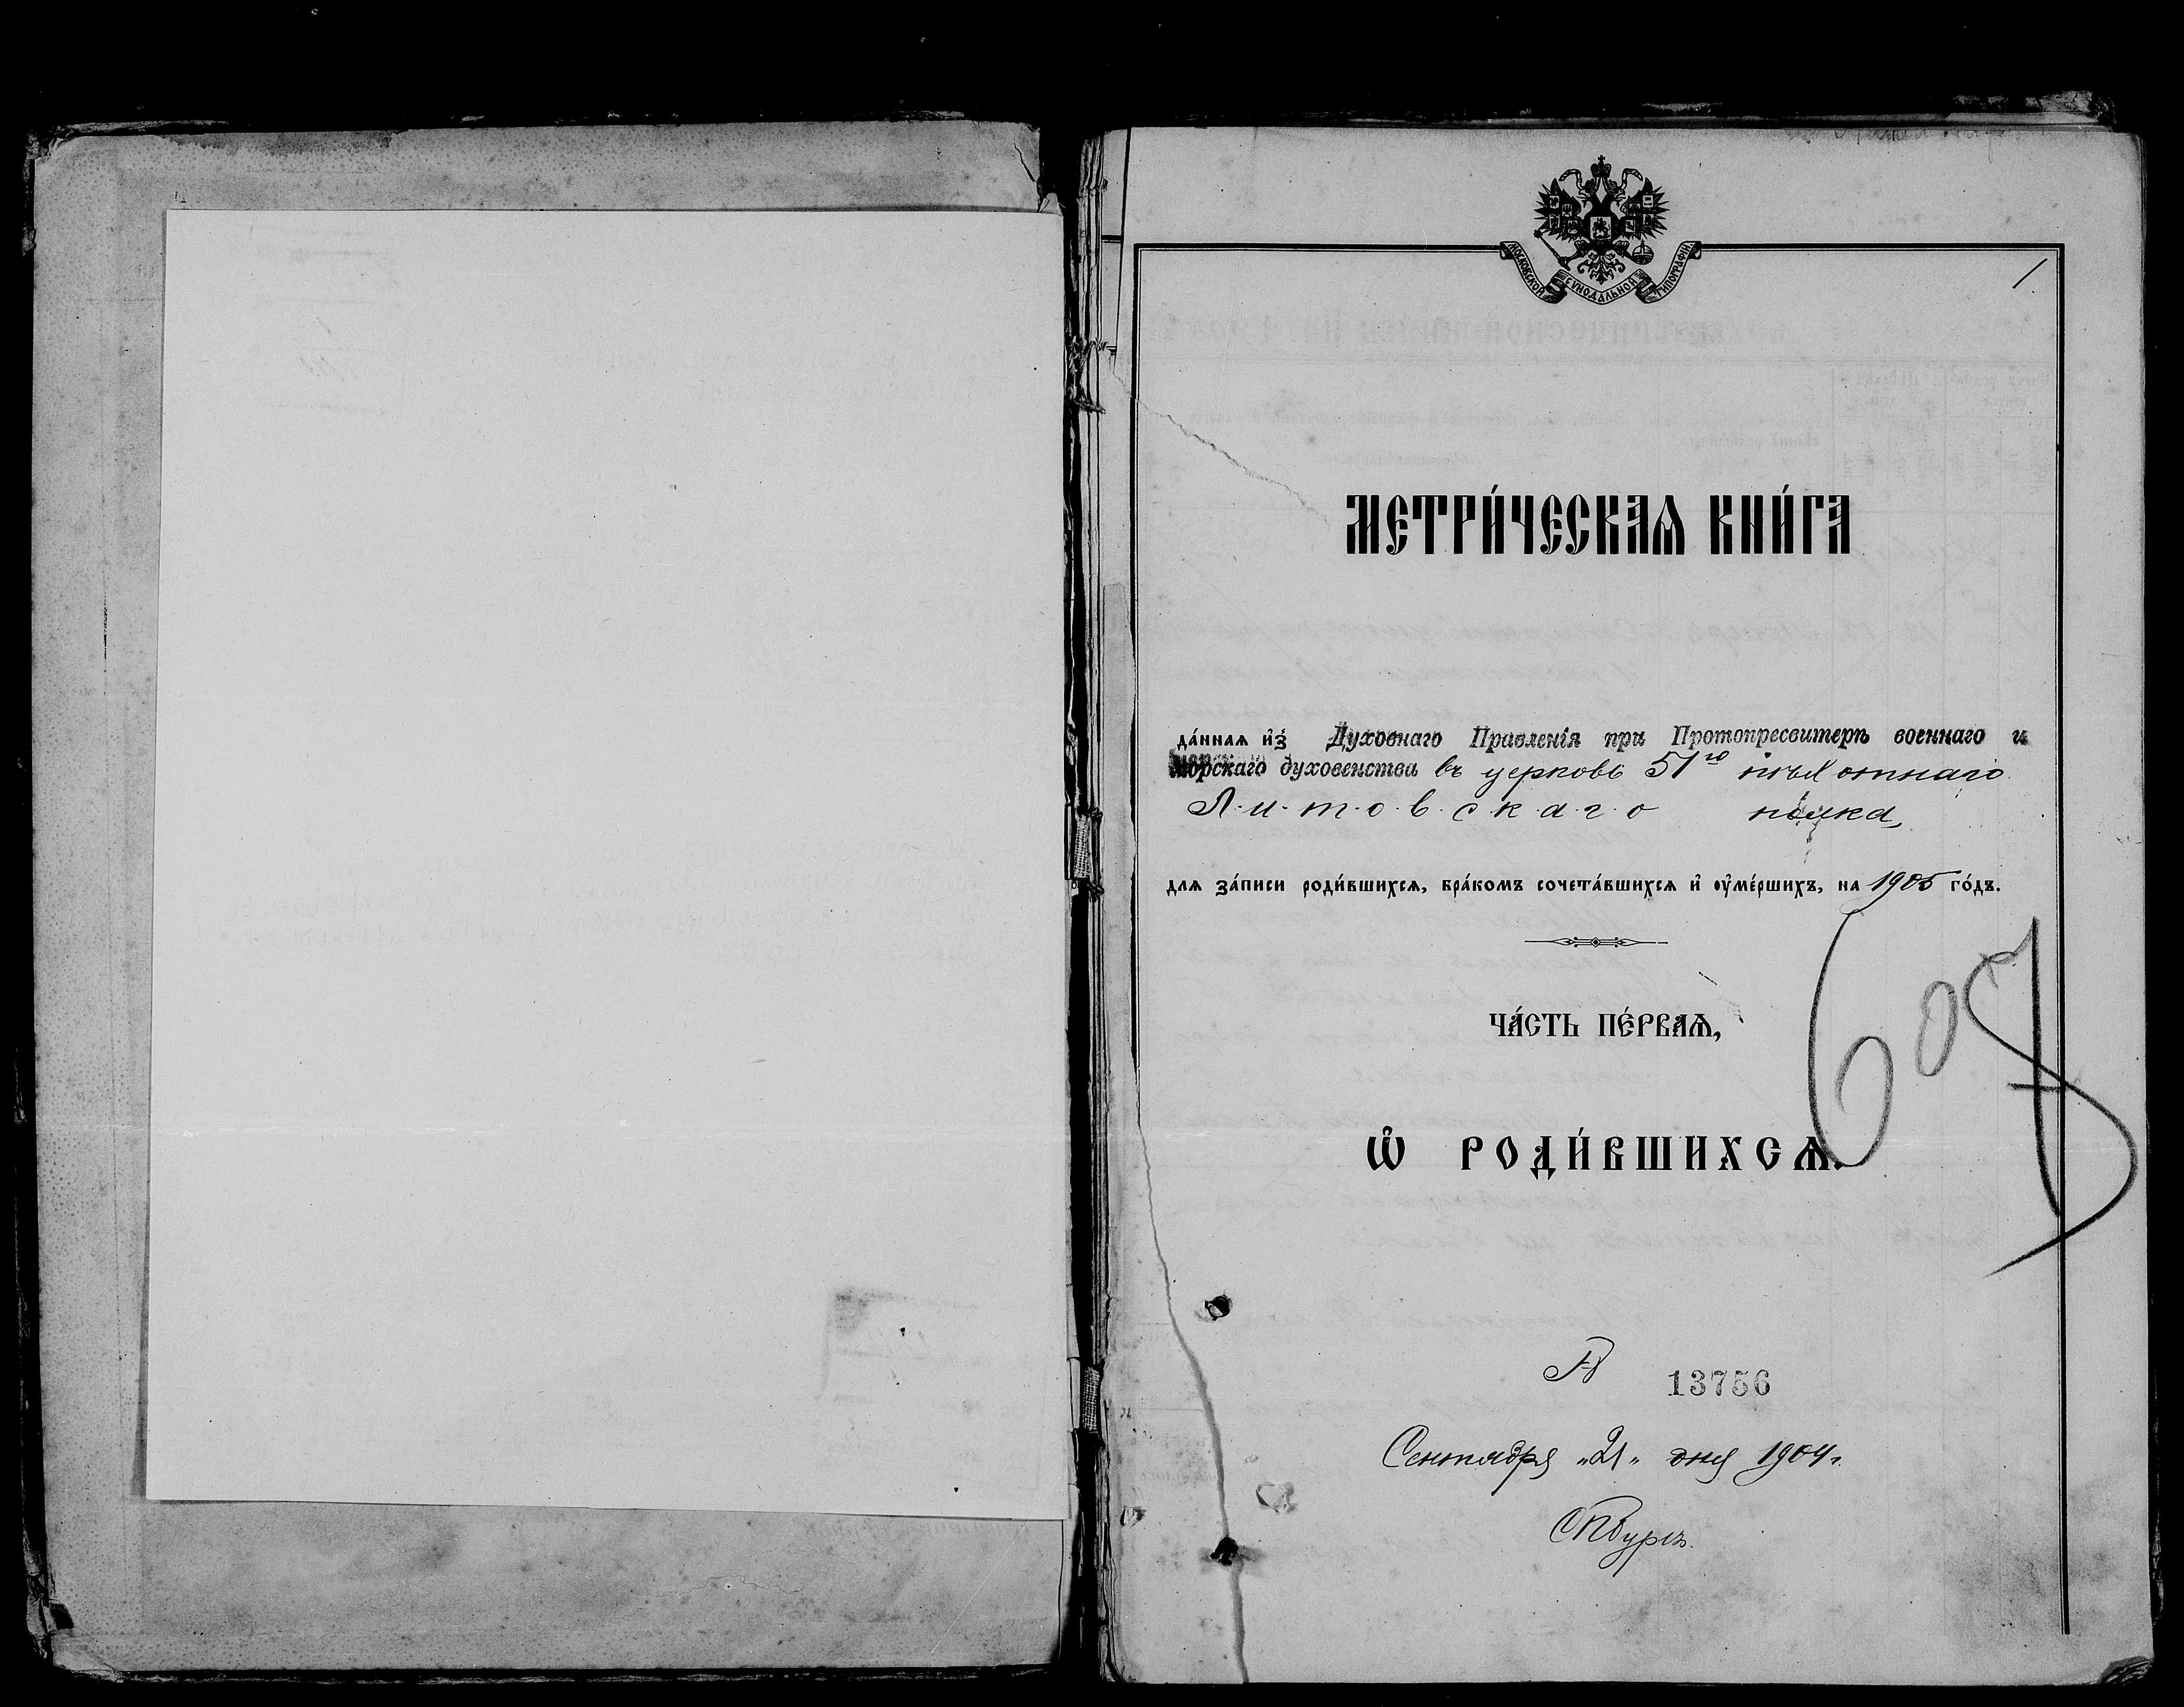 МОСКОВСКОЙ СѴНОДАЛЬНОЙ ТИПОГРАФІИ
1
МЕТРИ́ЧЕСКАѦ КНИ́ГА
да́ннаѧ и҆з̾ Духовнаго Правленія при Протопресвитерѣ военнаго и
морскаго духовенства въ церковь 51го пѣхотнаго
Л.и.т.о.в.с.к.а.г.о полка,
длѧ за́писи роди́вшихсѧ, бра́комъ сочета́вшихсѧ и҆ ᲂу҆ме́ршихъ, на 1905 го́дъ.
ЧА́СТЬ ПЕ́РВАѦ,
Ѡ҆ РОДИ́ВШИХСѦ.
№ 13756
Сентября „21„ дня 1904 г.
СПбургъ.